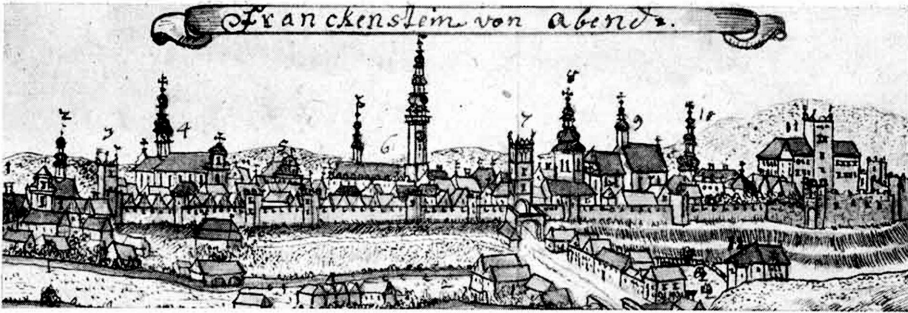 Franckenstein von Abend.
2
3
4
5
6
7
8
9
10
11